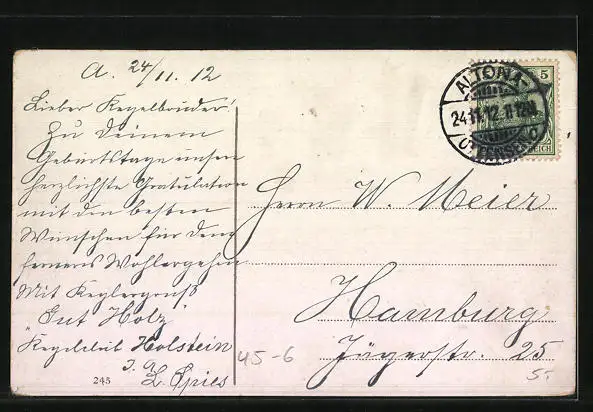 A. 24/11. 12
Lieber Kegelbruder!
Zu Deinem
Geburtstage unsere
herzlichste Gratulation
mit den besten
Wünschen für Dein
ferneres Wohlergehen
Mit Keglergruß
"Gut Holz"
Kegelclub Holstein
I. A.
L. Spies
245
45-6
ALTONA
24.11.12. 11-12V.
(OTTENSEN)
5
REICH
Herrn W. Meier
Hamburg
Jägerstr. 25
5.-